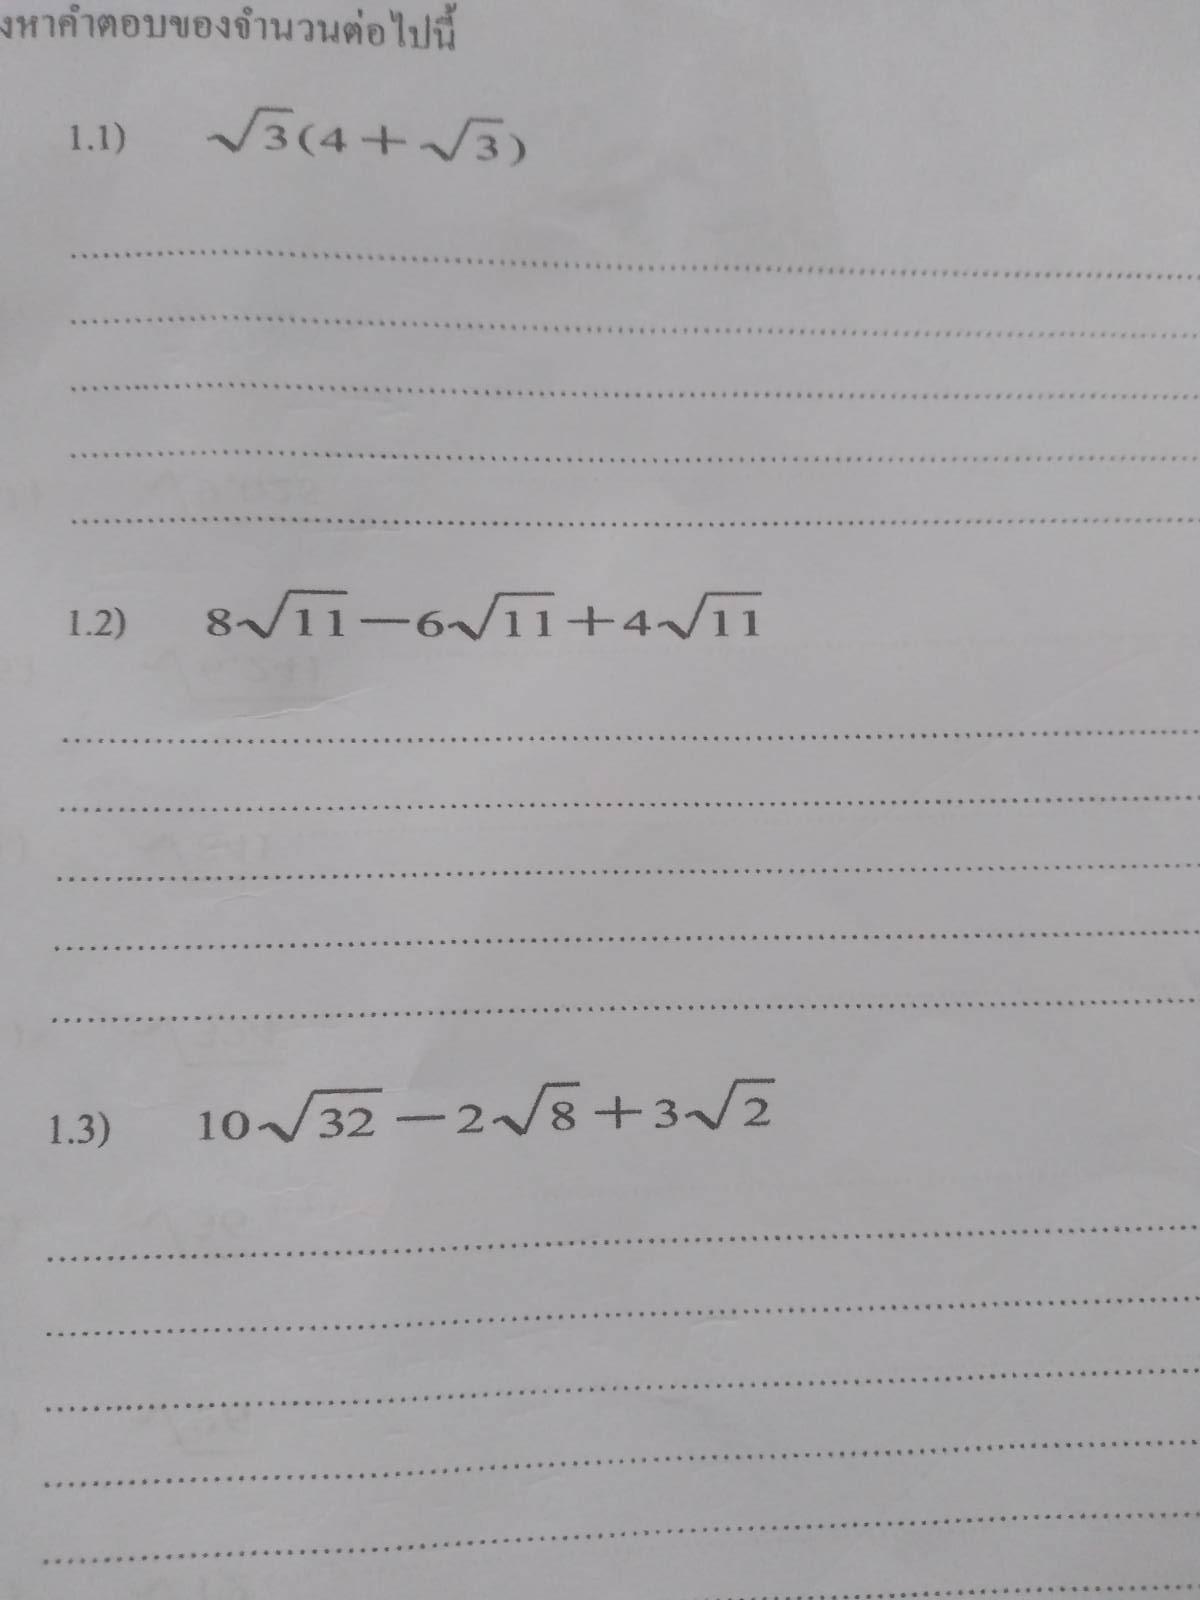 งหาคำตอบของจำนวนต่อไปนี้
1.1) √3(4 + √3)
1.2) 8√11 − 6√11 + 4√11
1.3) 10√32 − 2√8 + 3√2